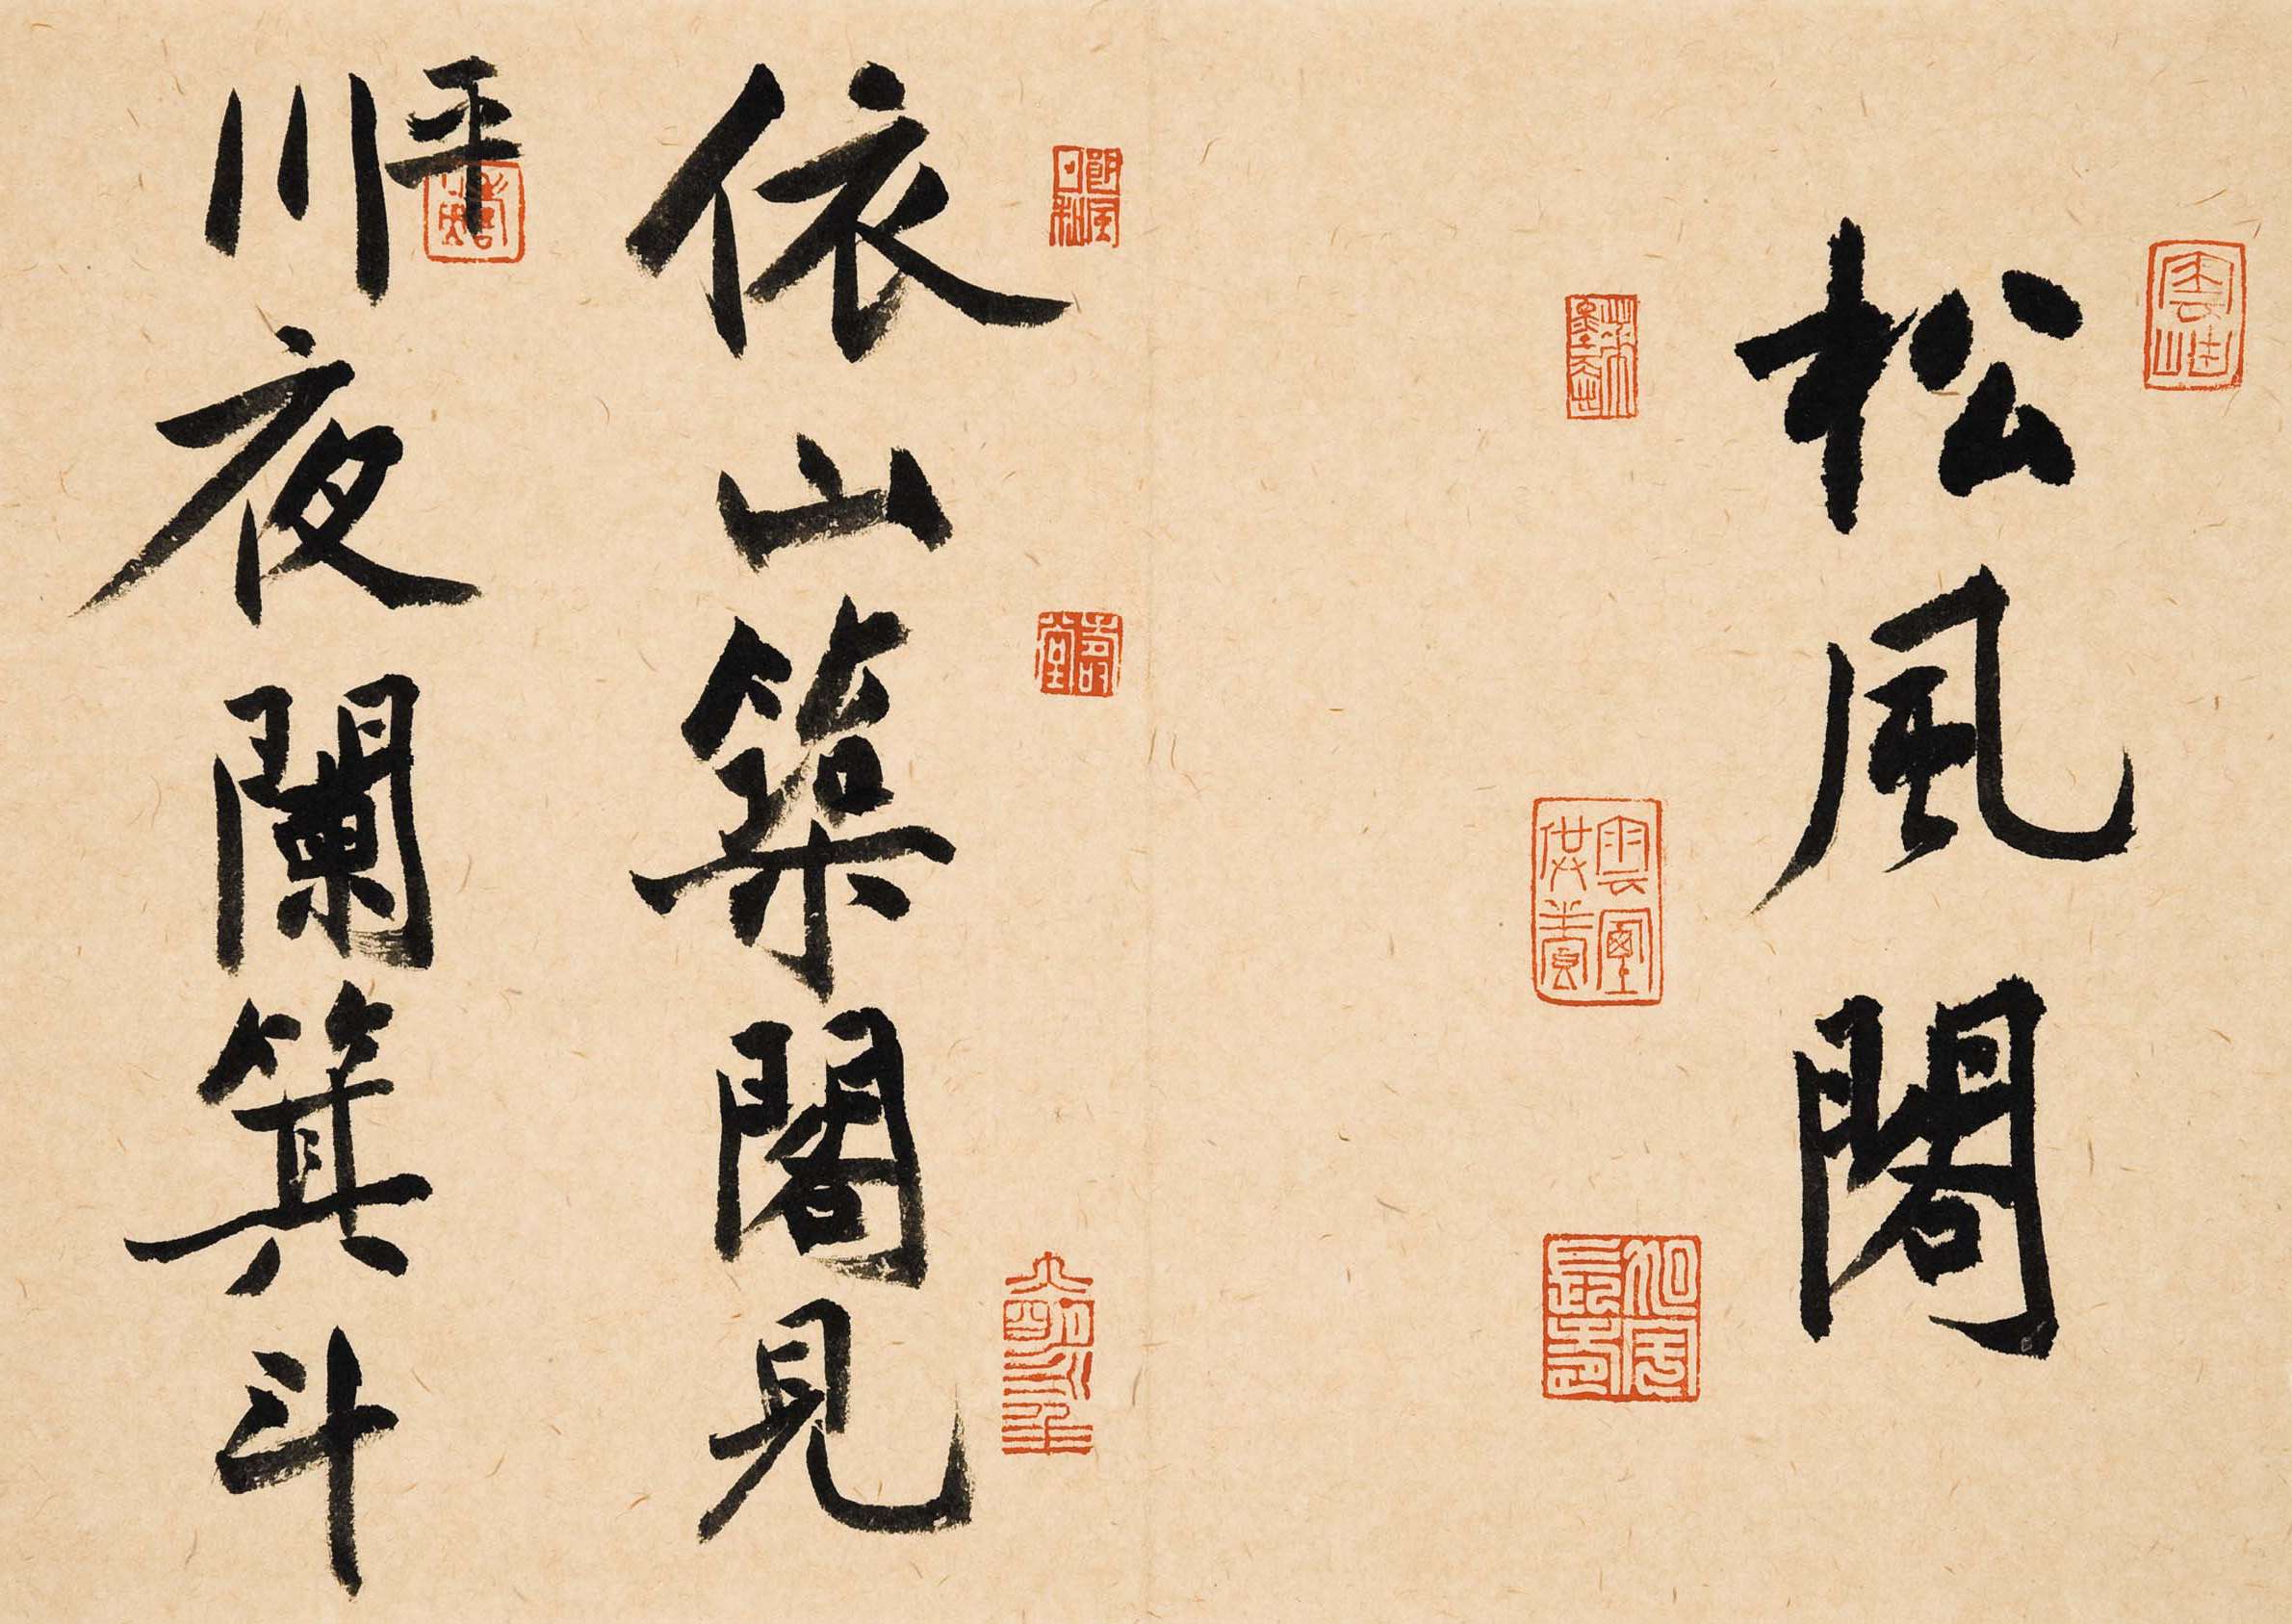 松風閣
依山築閣見
平
川夜闌箕斗